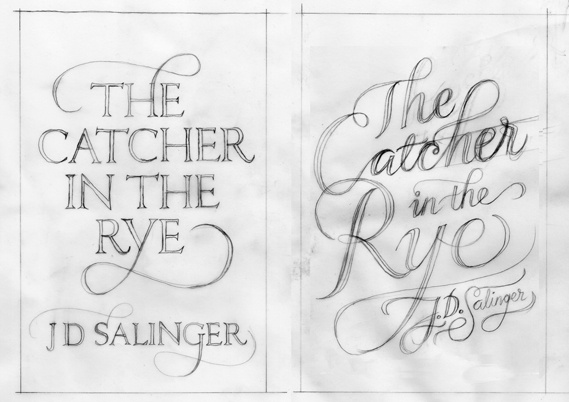 THE
CATCHER
IN THE
RYE
JD SALINGER
The
Catcher
in the
Rye
J.D. Salinger